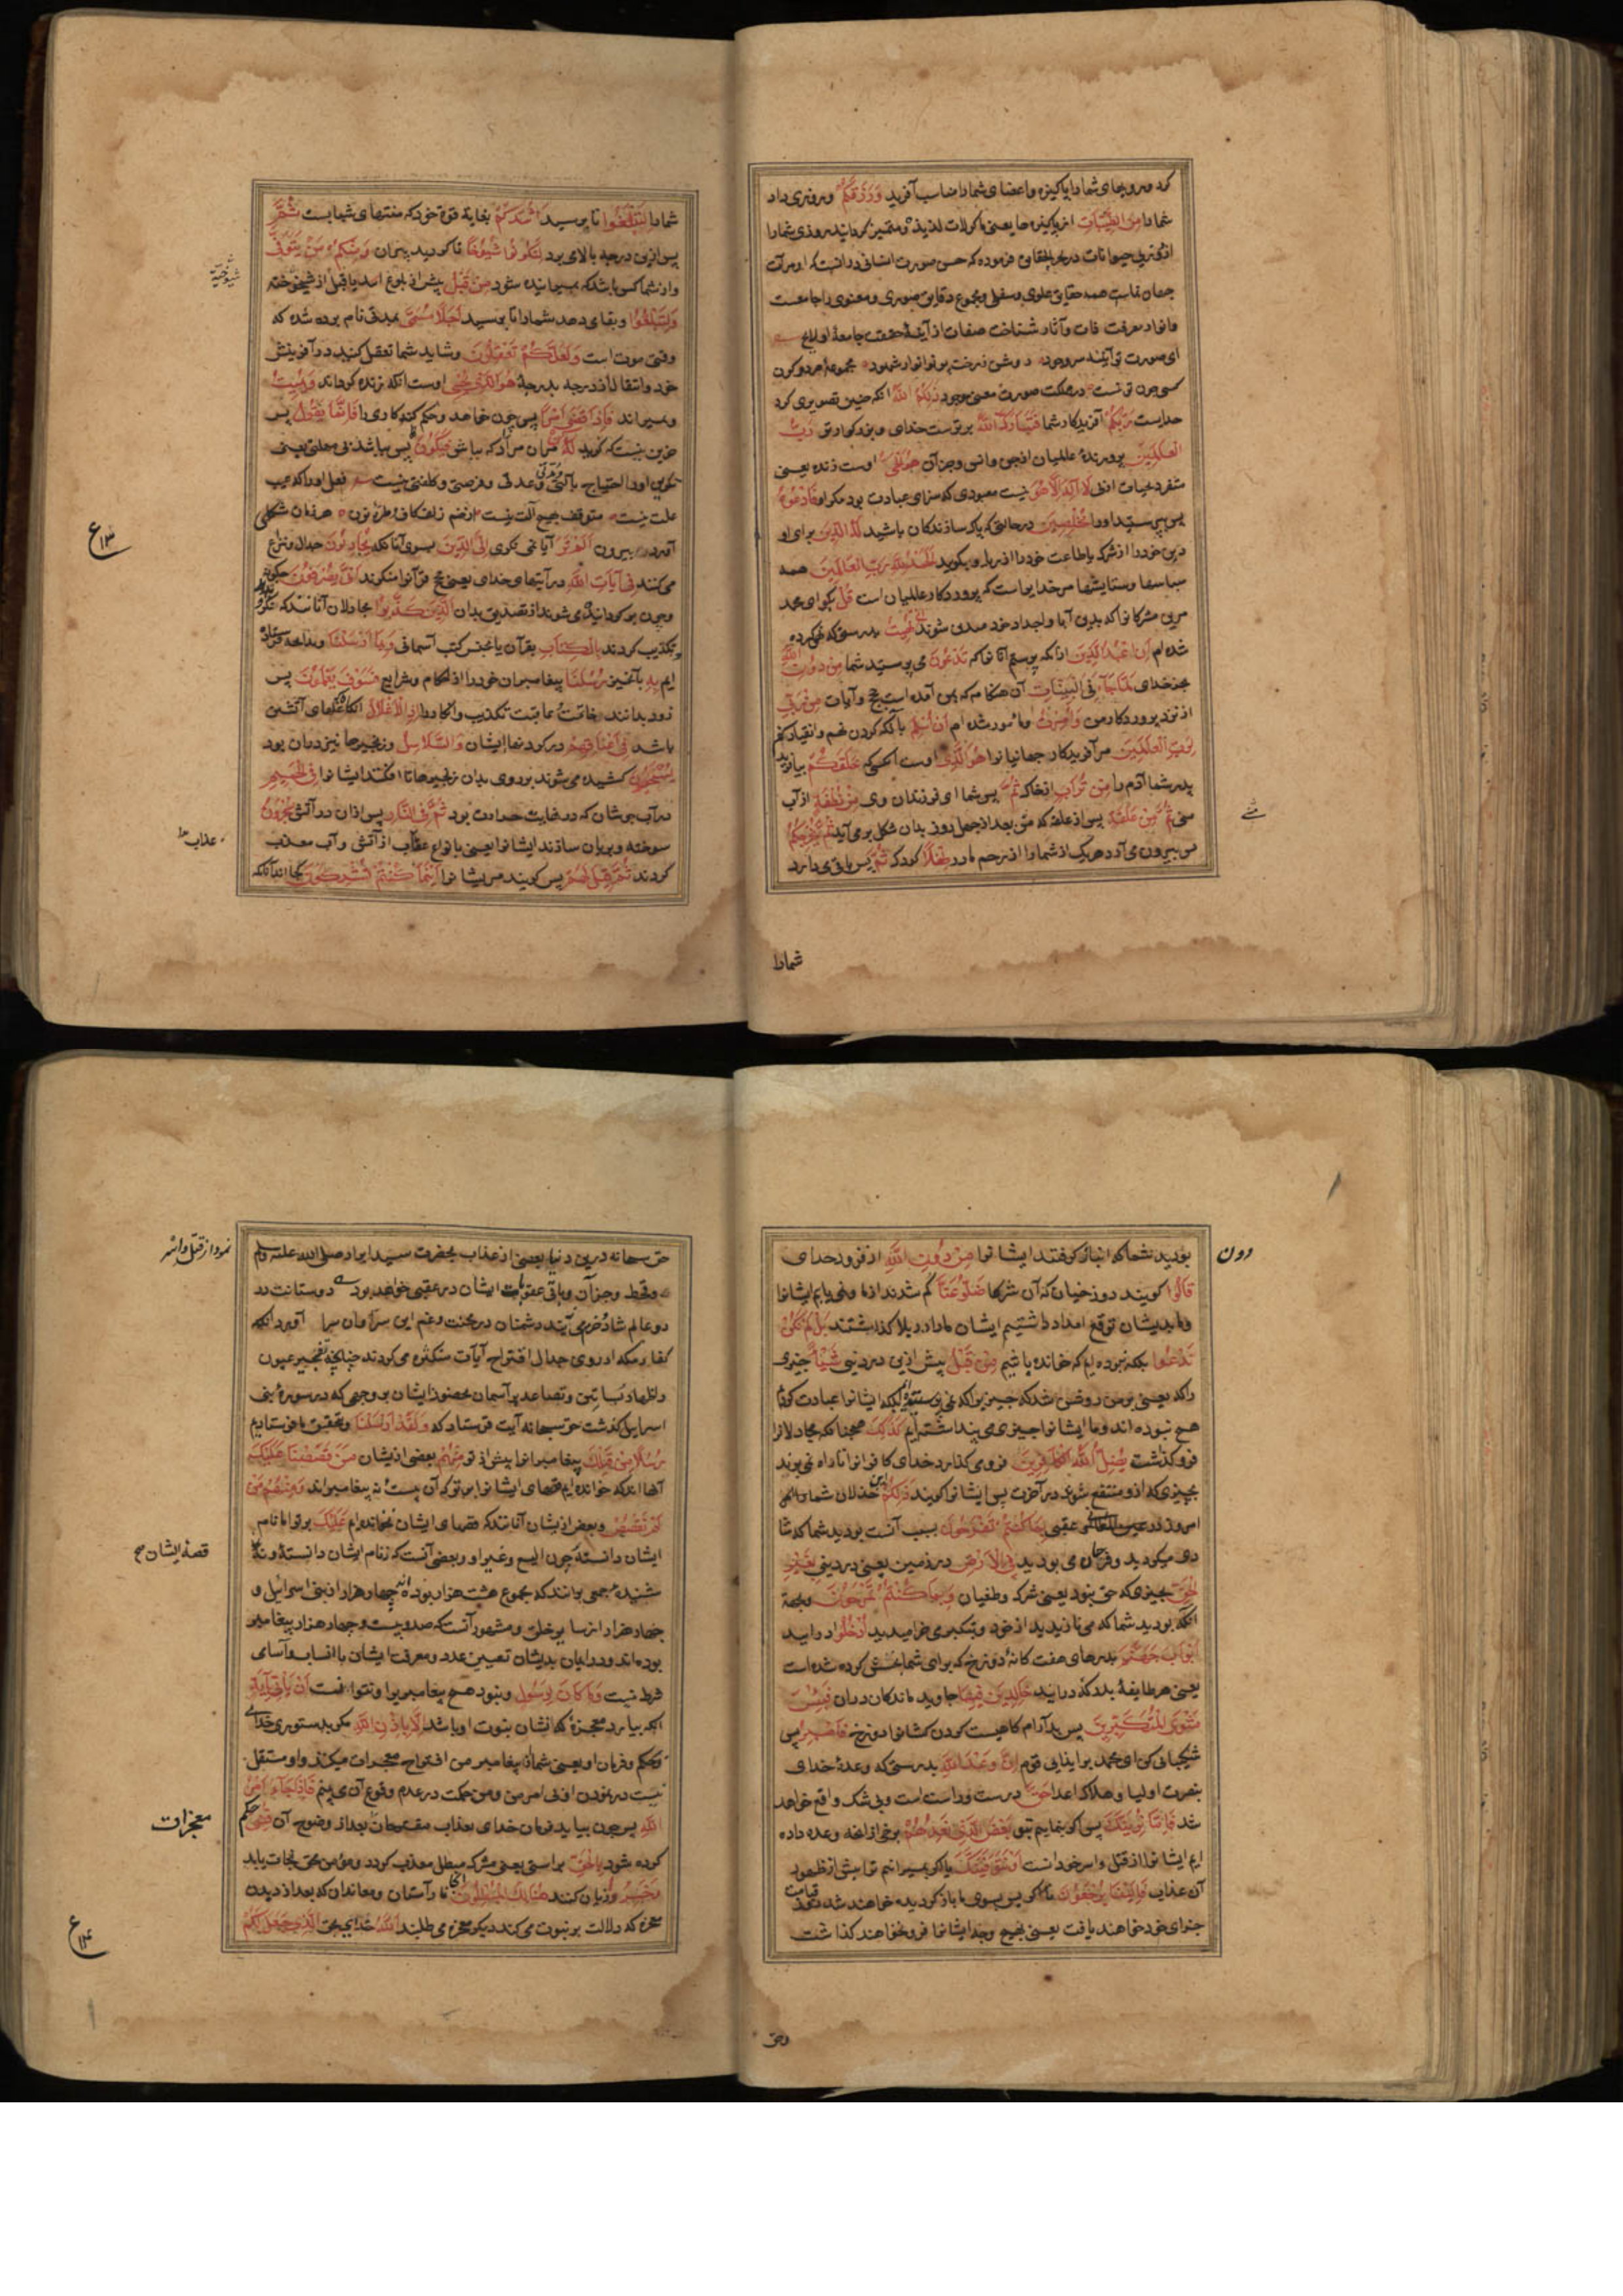 کرد و رویهای شما را پاکیزه و اعضای شما را مناسب آفرید وَرَزَقَكُمْ و روزی داد
شما را مِنَ الطَّيِّبَاتِ از پاکیزه‌ها یعنی ماکولات لذیذه
جهان نماست همه حقایق علوی و سفلی و مجموع دقایق صوری و معنوی را جامعست
و انوار معرفت ذات و آثار شناخت صفات از آینهٔ حقیقت جامعهٔ او لایح
ای صورت تو آینهٔ سر وجود روشن ز رخت پرتو انوار شهود مجموعهٔ هر دو کون
کسی چون تو نیست در مملکت صورت و معنی موجود ذَلِكُمُ اللَّهُ آنکه چنین تصویری کرد
خدایست رَبُّكُمْ آفریدکار شما فَتَبَارَكَ اللَّهُ برترست خدای و بزرکوارتر رَبُّ
الْعَالَمِينَ پرورندهٔ عالمیان از جن و انس و جز آن هُوَ الْحَيُّ اوست زنده یعنی
متفرد بحیات ازلی لَا إِلَهَ إِلَّا هُوَ نیست معبودی که سزای عبادت بود مکر او فَادْعُوهُ
پس بپرستید او را مُخْلِصِينَ در حالتی که پاک سازندکان باشید لَهُ الدِّينَ برای او
دین خود را از شرک یا طاعت خود را از ریا و بکویید الْحَمْدُ لِلَّهِ رَبِّ الْعَالَمِينَ همه
سپاسها و ستایشها مر خدایراست که پروردکار عالمیان است قُلْ بکو ای محمد
مر این مشرکانرا که بدین آبا و اجداد خود می شوند إِنِّي نُهِيتُ بدرستی که نهی کرده
شده ام أَنْ أَعْبُدَ الَّذِينَ از انکه بپرستم آنانرا که تَدْعُونَ می پرستید شما مِنْ دُونِ اللَّهِ
بجز خدای لَمَّا جَاءَنِيَ الْبَيِّنَاتُ آن هنکام که بمن آمده است حجج و آیات مِنْ رَبِّي
از نزد پروردکار من وَأُمِرْتُ و مأمور شده ام أَنْ أُسْلِمَ بآنکه کردن نهم و انقیاد کنم
لِرَبِّ الْعَالَمِينَ مر آفریدکار جهانیانرا هُوَ الَّذِي اوست آنکسی که خَلَقَكُمْ بیافرید
پدر شما آدم را مِنْ تُرَابٍ از خاک ثُمَّ پس شما ای فرزندان وی مِنْ نُطْفَةٍ از آب
منی ثُمَّ مِنْ عَلَقَةٍ پس از علقه که منی بعد از چهل روز بدان شکل بر می آید ثُمَّ يُخْرِجُكُمْ
پس بیرون می آرد هر یک از شما را از رحم مادر طِفْلًا کودک ثُمَّ پس باقی دارد
شما را
شما را لِتَبْلُغُوا تا برسید أَشُدَّكُمْ بغایة قوة خود که منتهای شبابست ثُمَّ
پس ازین درجه بالای برد لِتَكُونُوا شُيُوخًا تا کردید پیران وَمِنْكُمْ مَنْ يُتَوَفَّى
و از شما کس باشد که میرانیده شود مِنْ قَبْلُ پیش از بلوغ اشد یا قبل از شیخوخته
وَلِتَبْلُغُوا و بقای دهد شما را تا برسید أَجَلًا مُسَمًّى بمدتی نام برده شده که
وقت موت است وَلَعَلَّكُمْ تَعْقِلُونَ و شاید شما تعقل کنید در آفرینش
خود و انتقال از درجه بدرجه هُوَ الَّذِي يُحْيِي اوست آنکه زنده کرداند وَيُمِيتُ
و بمیراند فَإِذَا قَضَى أَمْرًا پس چون خواهد و حکم کند کاری را فَإِنَّمَا يَقُولُ پس
جزین نیست که کوید لَهُ مر آن مراد که بباش فَيَكُونُ پس بباشد
علت نیست متوقف بهیچ آلت نیست از خم زلف کاف و طرهٔ نون هر زمان شکلی
آورد بیرون أَلَمْ تَرَ آیا نمی نکری إِلَى الَّذِينَ بسوی آنانکه يُجَادِلُونَ جدال و نزاع
می کنند فِي آيَاتِ اللَّهِ در آیتهای خدای یعنی حجج قرآنرا منکرند أَنَّى يُصْرَفُونَ
تکذیب کردند بِالْكِتَابِ بقرآن یا بجنس کتب آسمانی وَبِمَا أَرْسَلْنَا و بدانچه فرستاده
ایم بِهِ بآنچیز رُسُلَنَا پیغامبران خود را از احکام و شرایع فَسَوْفَ يَعْلَمُونَ پس
زود بدانند خاتمت عاقبت تکذیب و انکار را إِذِ الْأَغْلَالُ آنکاه که غلهای آتشین
باشد فِي أَعْنَاقِهِمْ در کردنهای ایشان وَالسَّلَاسِلُ و زنجیرها نیز در میان بود
يُسْحَبُونَ کشیده می شوند بر روی بدان زنجیرها تا افکند ایشانرا فِي الْحَمِيمِ
در آب جوشان که در غایت حرارت بود ثُمَّ فِي النَّارِ پس از آن در آتش يُسْجَرُونَ
سوخته و بریان سازند ایشانرا یعنی بانواع عقاب از آتش و آب معذب
کردند ثُمَّ قِيلَ لَهُمْ پس کویند مر ایشانرا أَيْنَ مَا كُنْتُمْ تُشْرِكُونَ کجا اند آنانکه
ع ۱۳
عذاب
بودید شما که انباز کرفتید ایشانرا مِنْ دُونِ اللَّهِ از فرود خدای
دون
قَالُوا کویند دوزخیان که آن شرکا ضَلُّوا عَنَّا کم شدند از ما و نمی یابیم ایشانرا
و ما بدیشان توقع امداد داشتیم ایشان ما را در بلا کذاشتند بَلْ لَمْ نَكُنْ
نَدْعُوا بلکه نبوده ایم که خوانده باشیم مِنْ قَبْلُ پیش ازین در دنیی شَيْئًا چیزی
هیچ نبوده اند و ما ایشانرا چیزی می پنداشته ایم كَذَلِكَ همچنانکه مجادلانرا
فرو کذاشت يُضِلُّ اللَّهُ الْكَافِرِينَ فرو می کذارد خدای کافرانرا تا راه نمی برند
بچیزی که ازو منتفع شوند در آخرت پس ایشانرا کویند ذَلِكُمْ این خذلان شما را
عقبی بِمَا كُنْتُمْ تَفْرَحُونَ بسبب آنست بودید شما که شا
دی میکردید و فرحان می بودید فِي الْأَرْضِ در زمین یعنی در دنیی بِغَيْرِ
الْحَقِّ بچیزی که حق نبود یعنی شرک و طغیان وَبِمَا كُنْتُمْ تَمْرَحُونَ و بجهة
آنکه بودید شما که می نازیدید از خود و بتکبر می خرامیدید ادْخُلُوا در آیید
أَبْوَابَ جَهَنَّمَ بدرهای هفت کانهٔ دوزخ که برای شما بخشش کرده شده است
یعنی هر طایفهٔ بدرکه در آیند خَالِدِينَ فِيهَا جاوید ماندکان در آن فَبِئْسَ
مَثْوَى الْمُتَكَبِّرِينَ پس بد آرام کاهیست کردن کشانرا دوزخ فَاصْبِرْ پس
شکیبائی کن ای محمد بر ایذای قوم إِنَّ وَعْدَ اللَّهِ بدرستی که وعدهٔ خدای
بنصرت اولیا و هلاک اعدا حَقٌّ درست و راست است و بی شک واقع خواهد
شد فَإِمَّا نُرِيَنَّكَ پس اکر بنماییم بتو بَعْضَ الَّذِي نَعِدُهُمْ برخی از آنچه وعده داده
ایم ایشانرا از قتل و اسر خود آنست أَوْ نَتَوَفَّيَنَّكَ یا اکر بمیرانیم ترا پیش از ظهور
آن عذاب فَإِلَيْنَا يُرْجَعُونَ پس بسوی ما باز کردیده خواهند شد
جزای خود خواهند یافت یعنی بهیچ وجه ایشانرا فرو نخواهند کذاشت
وحق
حق سبحانه درین دنیا بعضی از عذاب بحضرت سید ابرار صلی الله علیه وسلم
نمود از قتل و اسر
و قحط و جز آن و باقی عقوبات ایشان در عقبی خواهد بود دوستانت در
دو عالم شاد و خرم می آیند دشمنان در محنت و غم این سرا و آن سرا آورد آنکه
کفار مکه از روی جدال اقتراح آیات متکثره می کردند چنانچه تفجیر عیون
و اظهار بساتین و تصاعد بر آسمان بحضور ایشان بر وجهی که در سورهٔ بنی
اسرایل کذشت حق سبحانه آیت فرستاد که وَلَقَدْ أَرْسَلْنَا و بتحقیق ما فرستادیم
رُسُلًا مِنْ قَبْلِكَ پیغامبرانرا پیش از تو مِنْهُمْ بعضی از یشان مَنْ قَصَصْنَا عَلَيْكَ
آنها اند که خوانده ایم قصهای ایشانرا بر تو که آن بیست و نه پیغامبراند وَمِنْهُمْ مَنْ
لَمْ نَقْصُصْ و بعض از یشان آنانند که قصهای ایشان نخوانده ایم عَلَيْكَ بر تو اما نام
قصهٔ ایشان صح
ایشان دانستهٔ چون الیسع و غیر او و بعضی آنست که نه نام ایشان دانستهٔ و نه
شنیدهٔ جمعی برانند که مجموع هشت هزار بوده اند چهار هزار از بنی اسرائل و
چهار هزار از سایر خلق و مشهور آنست که صد و بیست و چهار هزار پیغامبر
بوده اند و در ایمان بدیشان تعیین عدد و معرفت ایشان با انساب و اسامی
شرط نیست وَمَا كَانَ لِرَسُولٍ و نبود هیچ پیغامبریرا و نتوانست أَنْ يَأْتِيَ بِآيَةٍ
آنکه بیارد معجزهٔ که نشان نبوت او باشد إِلَّا بِإِذْنِ اللَّهِ مکر بدستوری خدای
و حکم و فرمان او یعنی شما از پیغامبر من اقتراح معجزات میکنید و او مستقل
نیست در نمودن فَإِذَا جَاءَ أَمْرُ
اللَّهِ پس چون بیاید فرمان خدای بعذاب مقترحان بعد از وضوح آن قُضِيَ حکم
معجزات
کرده شود بِالْحَقِّ براستی یعنی مشرک مبطل معذب کردد و مؤمن محق نجات یابد
وَخَسِرَ و زیان کنند هُنَالِكَ الْمُبْطِلُونَ آنجا ناراستان و معاندان که بعد از دیدن
معجزه که دلالت بر نبوت می کند دیکر معجزه می طلبند اللَّهُ خدای بحق الَّذِي جَعَلَ لَكُمُ
ع ۱۴